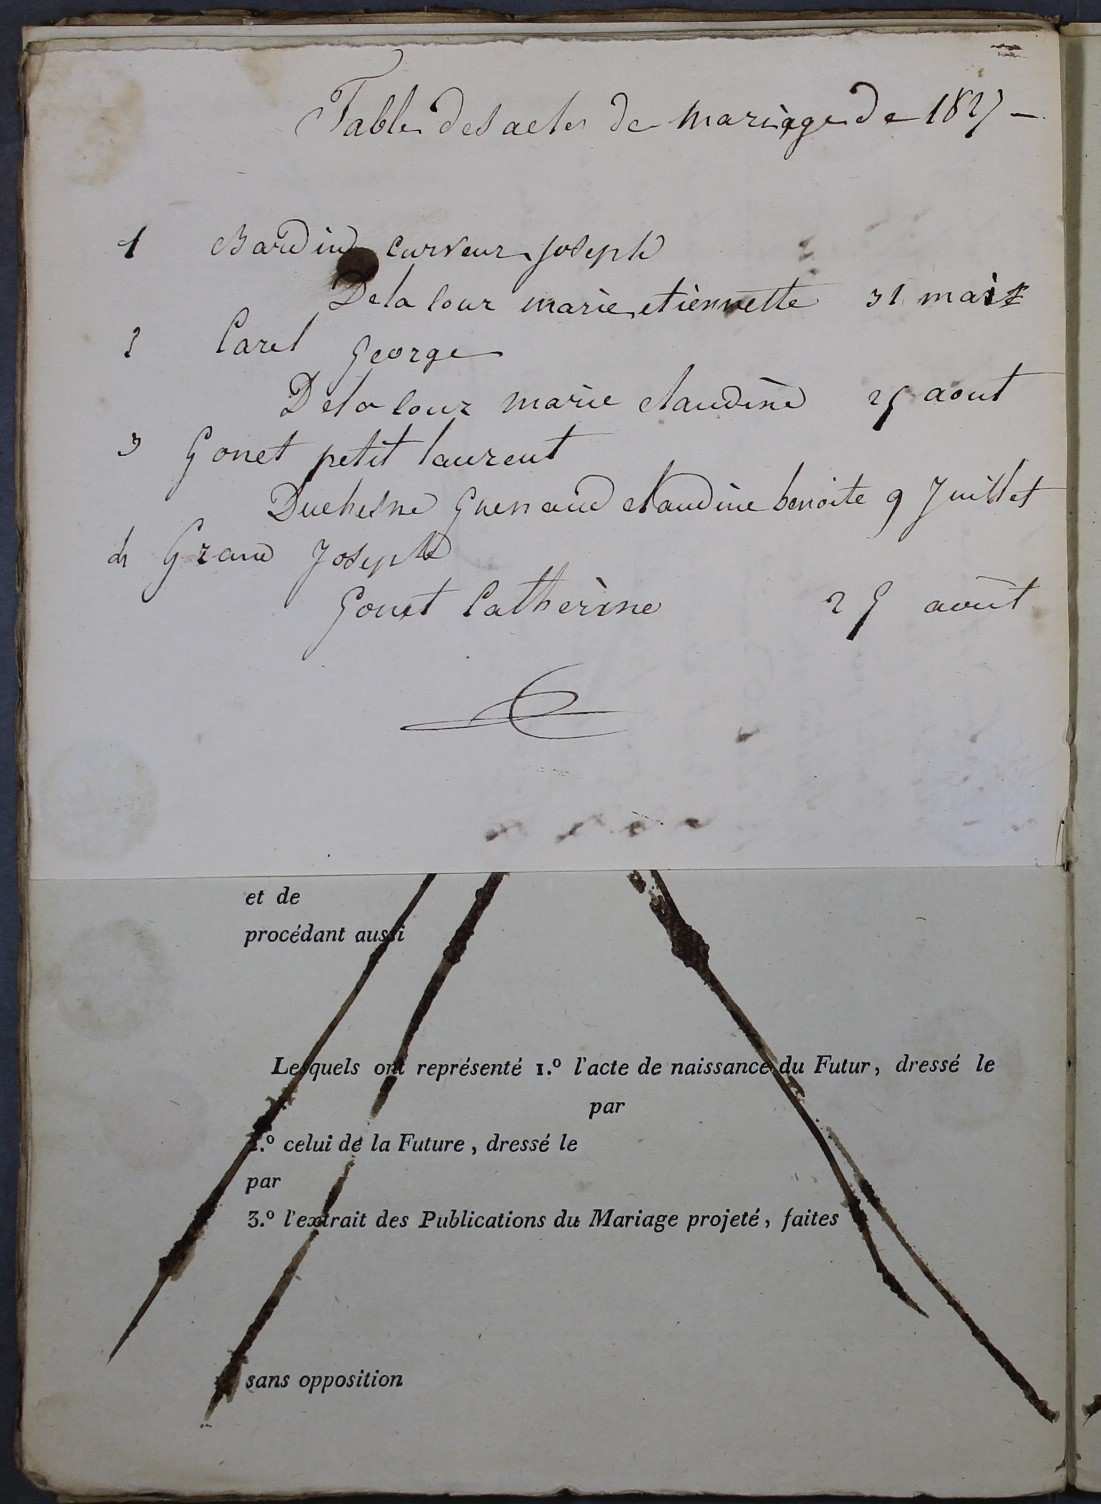 Table des actes de mariage de 1827 –
1 Bardin curveur Joseph
Dela cour marie etiennette 31 mai
2 Carel George
Dela cour marie claudine 25 aout
3 Gonet petit laurent
Duchesne Guenaud claudine benoite 9 Juillet
4 Grand Joseph
Gonet Catherine 25 aout
et de
procédant aussi
Lesquels ont représenté 1.º l'acte de naissance du Futur, dressé le
par
2.º celui de la Future, dressé le
par
3.º l'extrait des Publications du Mariage projeté, faites
sans opposition